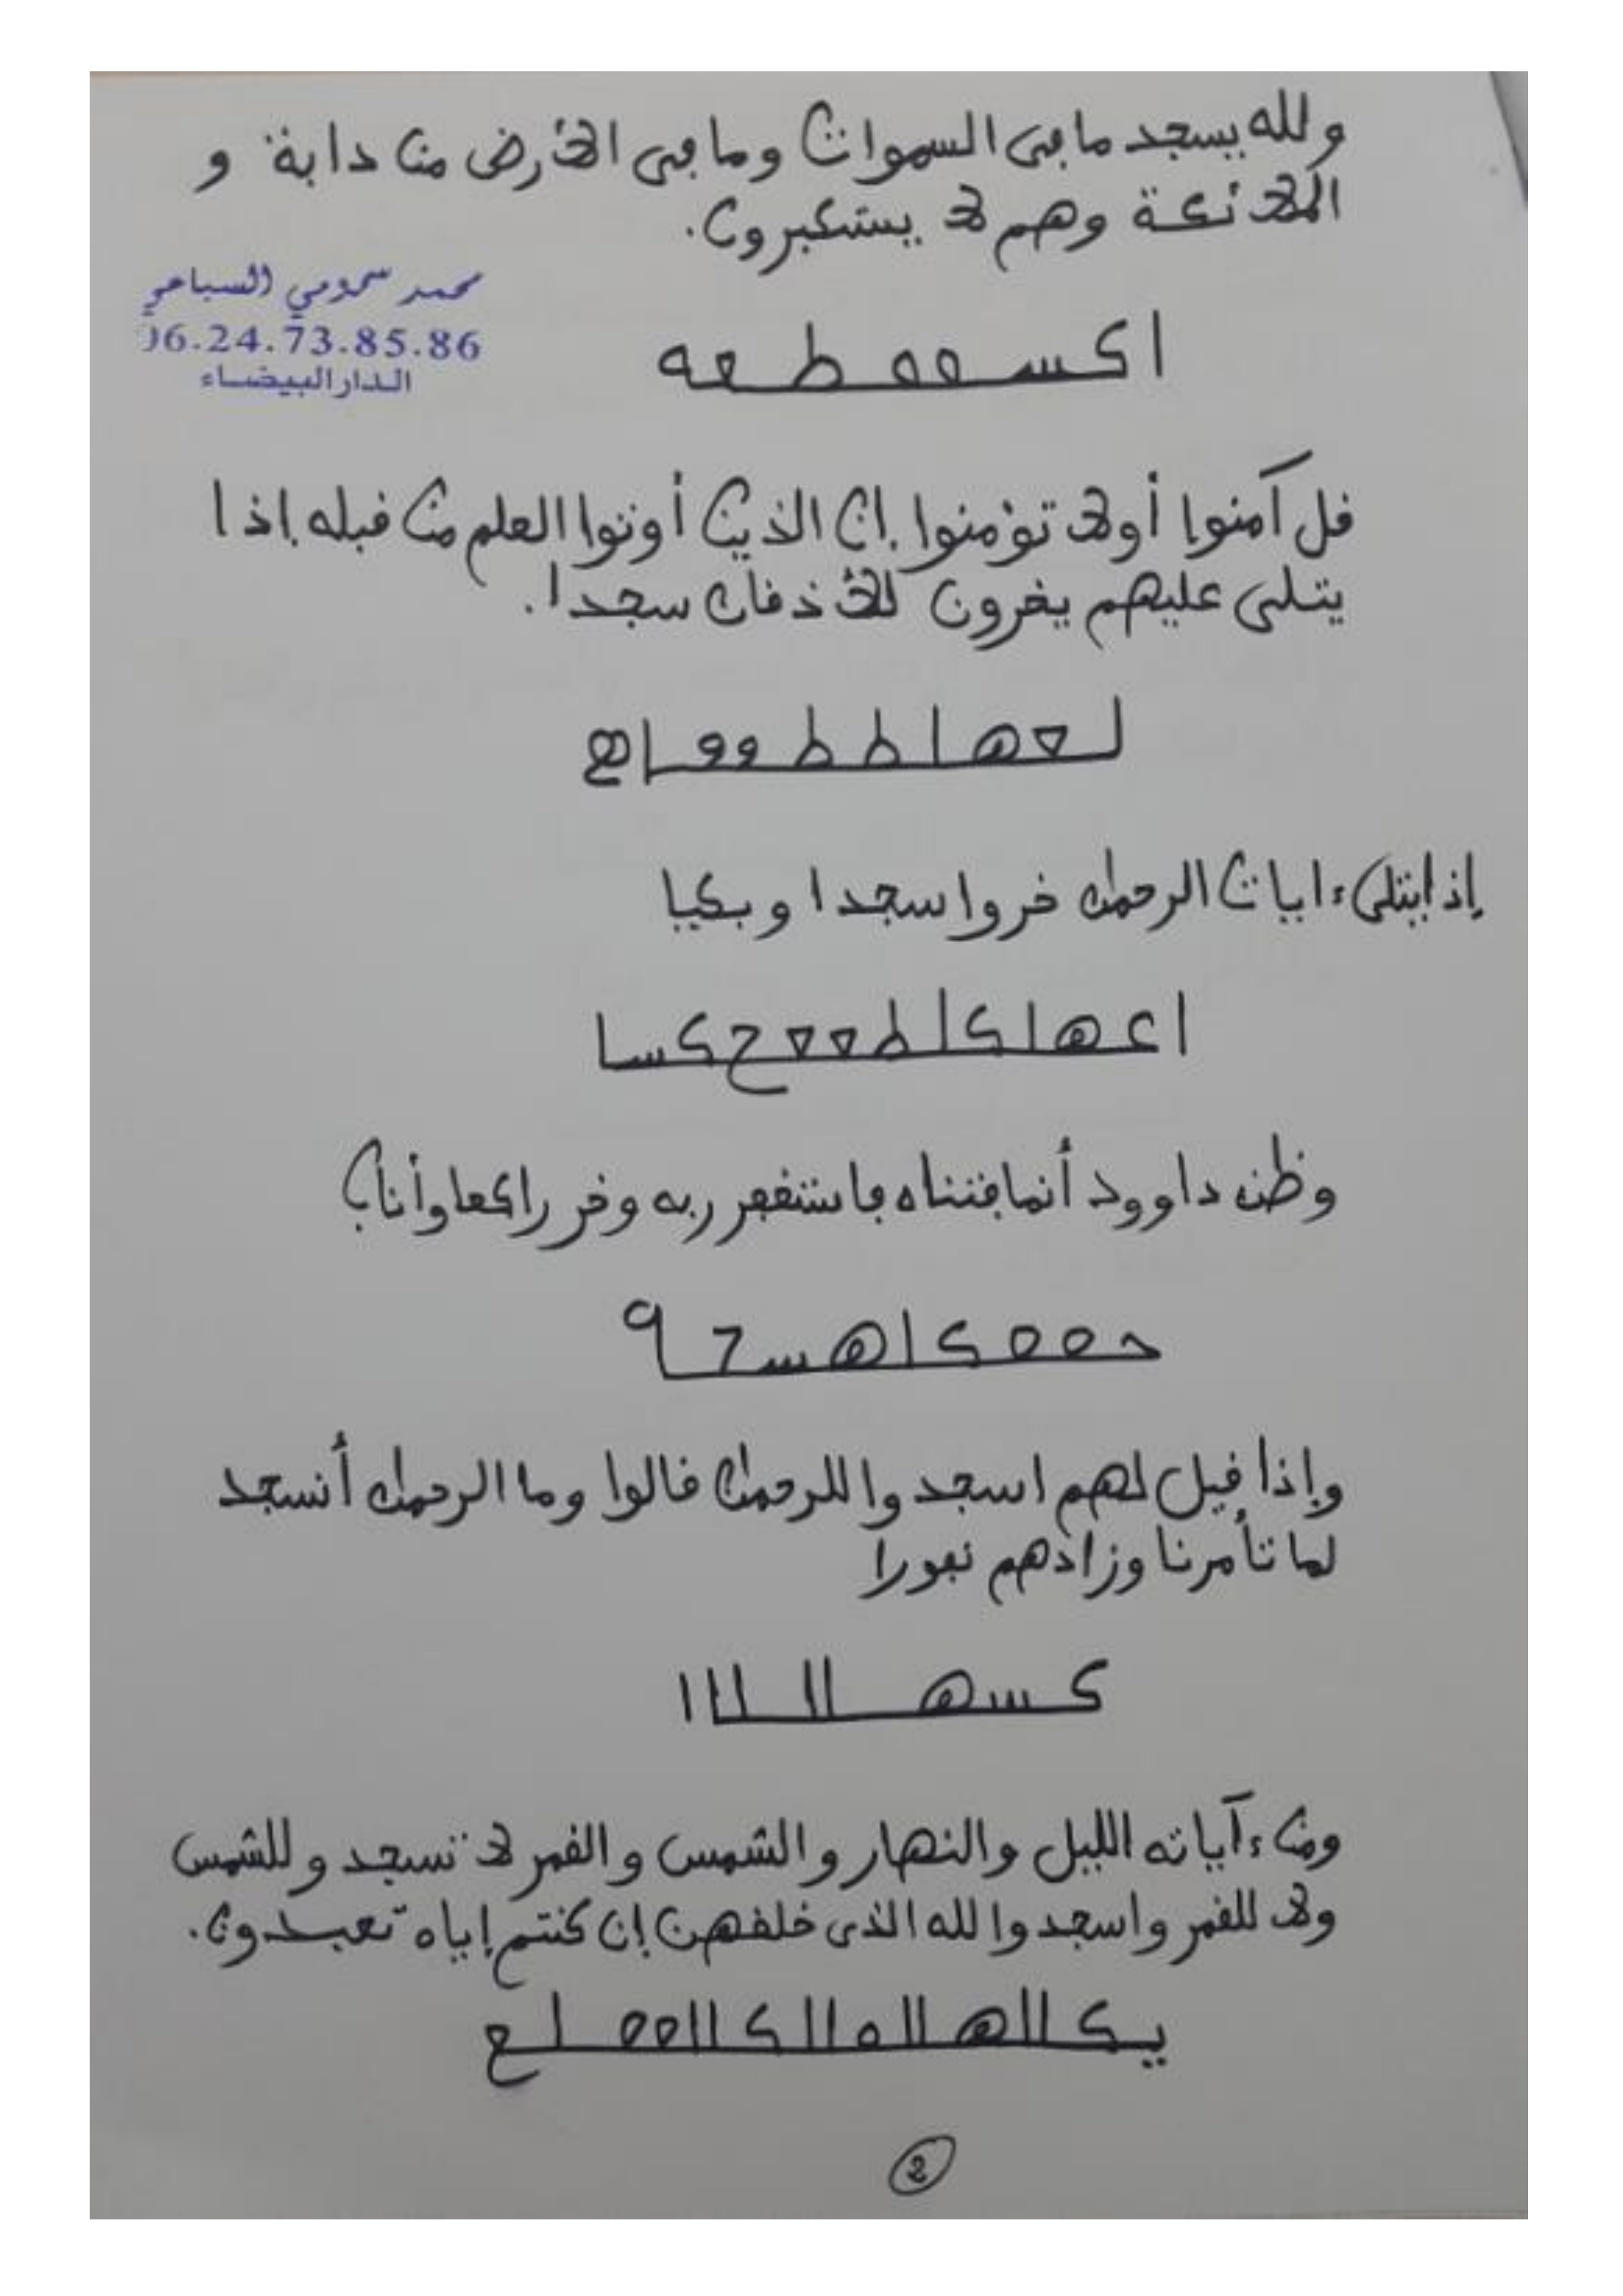 ولله يسجد ما في السموات وما في الأرض من دابة و
الملائكة وهم لا يستكبرون.
محمد سحومي السباعي
06.24.73.85.86
الدار البيضاء
قل آمنوا أولا تؤمنوا إن الذين أوتوا العلم من قبله إذا
يتلى عليهم يخرون للأذقان سجدا.
إذا تتلى ءايات الرحمان خروا سجدا وبكيا
وظن داوود أنما فتناه فاستغفر ربه وخر راكعا وأناب
وإذا قيل لهم اسجدوا للرحمان قالوا وما الرحمان أنسجد
لما تأمرنا وزادهم نفورا
ومن ءآياته الليل والنهار والشمس والقمر لا تسجدو للشمس
ولا للقمر واسجدوا لله الذي خلقهن إن كنتم إياه تعبدون.
2